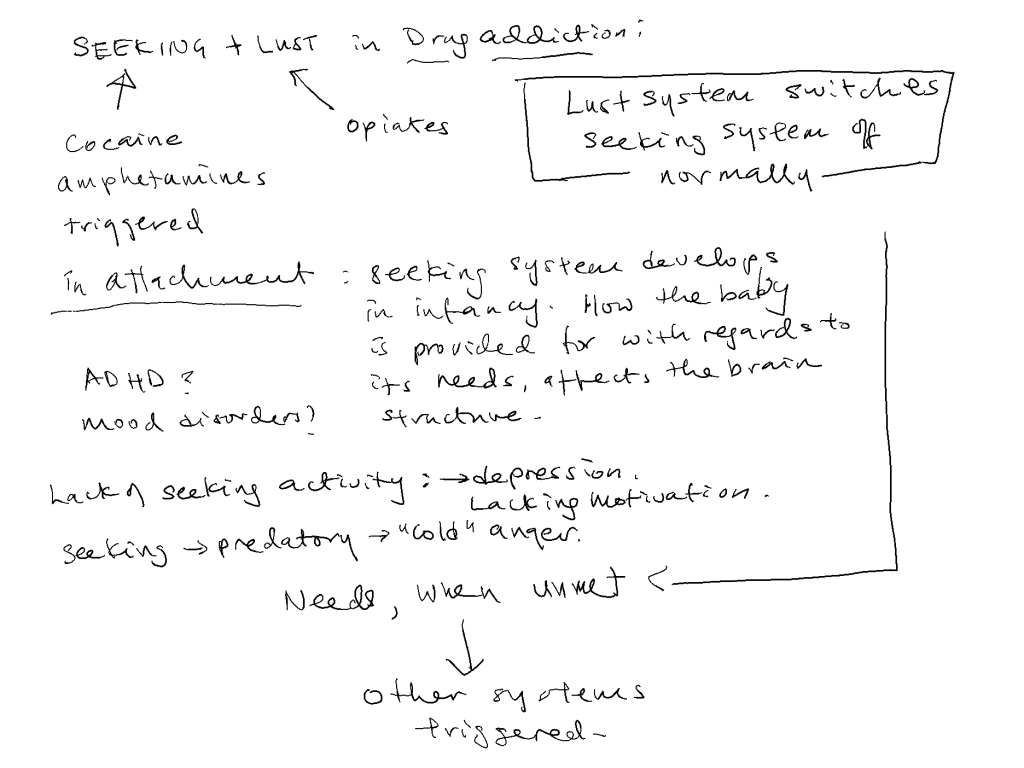 SEEKING + LUST in Drug addiction:
Lust system switches
seeking system off
normally
Cocaine
amphetamines
triggered
opiates
in attachment : seeking system develops
in infancy. How the baby
is provided for with regards to
its needs, affects the brain
structure -
ADHD ?
mood disorders?
Lack of seeking activity : → depression.
Lacking motivation.
seeking → predatory → "cold" anger.
Needs, when unmet
other systems
triggered -